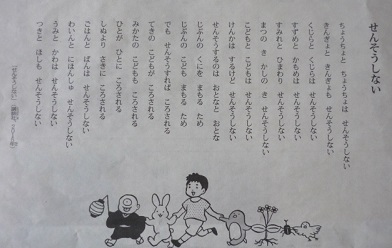 せんそうしない
ちょうちょと ちょうちょは せんそうしない
きんぎょと きんぎょも せんそうしない
くじらと くじらは せんそうしない
すずめと かもめは せんそうしない
すみれと ひまわり せんそうしない
まつの き かしの き せんそうしない
こどもと こどもは せんそうしない
けんかは するけど せんそうしない
せんそうするのは おとなと おとな
じぶんの くにを まもる ため
じぶんの こども まもる ため
でも せんそうすれば ころされる
てきの こどもが ころされる
みかたの こどもも ころされる
ひとが ひとに ころされる
しぬより さきに ころされる
ごはんと ぱんは せんそうしない
わいんと にほんしゅ せんそうしない
うみと かわは せんそうしない
つきと ほしも せんそうしない